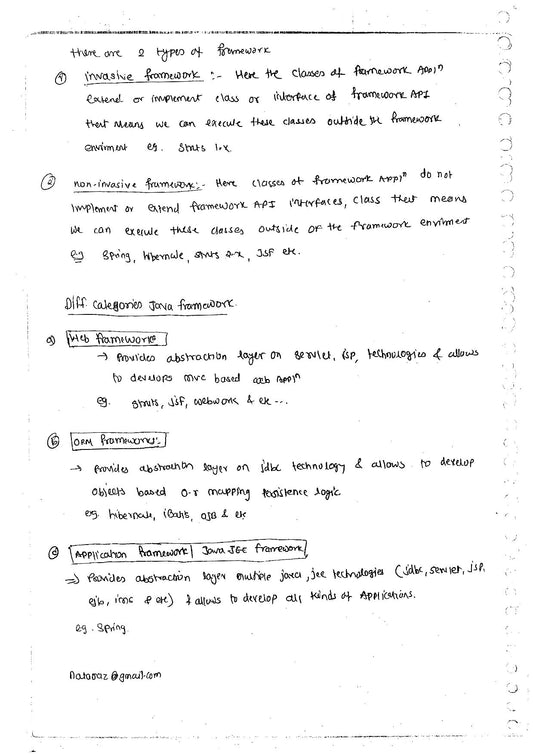 there are 2 types of framework
① invasive framework :- Here the classes of framework Appln
extend or implement class or interface of framework API
that means we can execute these classes outside the framework
envirment eg. Struts 1.x
② non-invasive framework:- Here classes of framework Appln do not
implement or extend framework API interfaces, class that means
we can execute these classes outside of the framework envirment
eg Spring, hibernate, struts 2.x, JSF etc.
Diff. Categories Java framework.
a) Web frameworks
→ Provides abstraction layer on servlet, jsp, technologies & allows
to develops mvc based web Appln
eg. struts, jsf, webwork & etc ...
b) ORM frameworks:-
→ Provides abstraction layer on jdbc technology & allows to develop
objects based o-r mapping persistence logic
eg. hibernate, iBatis, OJB & etc
c) Application framework | Java JEE framework
⇒ Provides abstraction layer multiple java, jee technologies (jdbc, servlet, jsp,
ejb, & etc) & allows to develop all kinds of Applications.
eg. Spring.
Nataraz@gmail.com